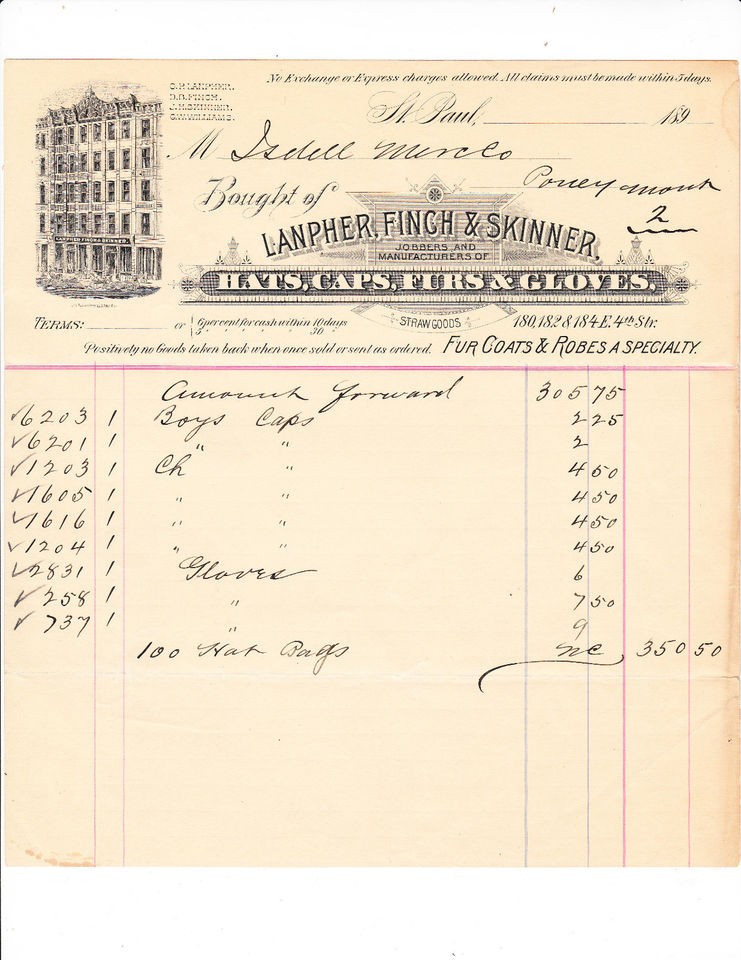 No Exchange or Express charges allowed. All claims must be made within 5 days.
O.P. LANPHER.
D.B. FINCH.
J.H. SKINNER.
C.W. WILLIAMS.
St. Paul, 189
M Isdell Merc Co
Poney mont
2
Bought of
LANPHER, FINCH & SKINNER,
JOBBERS AND
MANUFACTURERS OF
HATS, CAPS, FURS & GLOVES,
LANPHER FINCH & SKINNER
STRAW GOODS
180, 182 & 184 E. 4th Str.
TERMS: or 6 per cent for cash within 10 days
5 " " " " 30 "
Positively no Goods taken back when once sold or sent as ordered. FUR COATS & ROBES A SPECIALTY.
Amount forward 305 75
✓6203 1 Boys Caps 2 25
✓6201 1 " " 2
✓1203 1 Ch " 4 50
✓1605 1 " " 4 50
✓1616 1 " " 4 50
✓1204 1 " " 4 50
✓2831 1 Gloves 6
✓258 1 " 7 50
✓737 1 " 9
100 Hat Bags NC 350 50